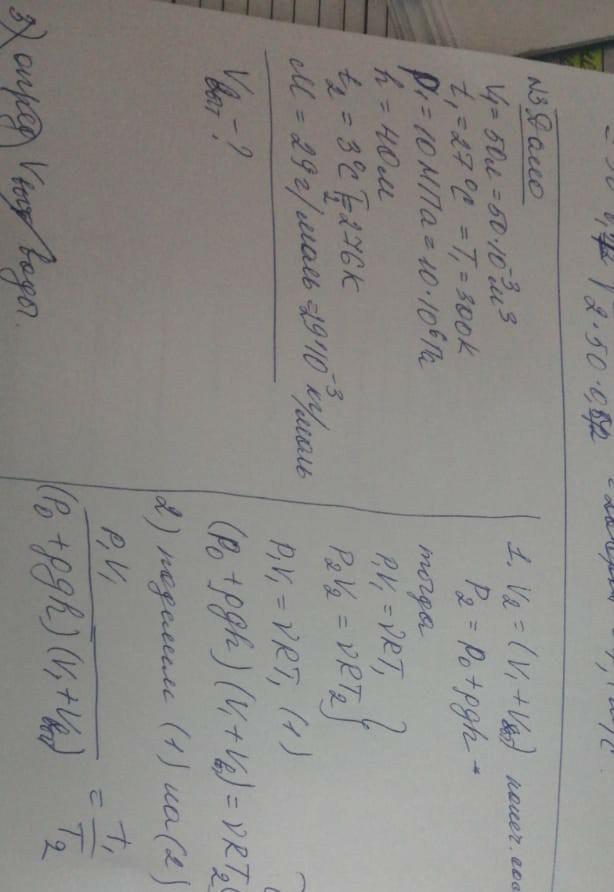 N3 Дано
V₁ = 50л = 50·10⁻³ м³
t₁ = 27°C = T₁ = 300K
p₁ = 10 МПа = 10·10⁶ Па
h = 40м
t₂ = 3°C T₂ = 276K
M = 29 г/моль = 29·10⁻³ кг/моль
V - ?
1. V₂ = (V₁ + V
P₂ = p₀ + ρgh
тогда
P₁V₁ = νRT₁
P₂V₂ = νRT₂ }
P₁V₁ = νRT₁ (1)
(p₀ + ρgh) (V₁ + V) = νRT₂
2) поделим (1) на (2)
P₁V₁ / (p₀ + ρgh) (V₁ + V) = T₁ / T₂
3) опред V воды.